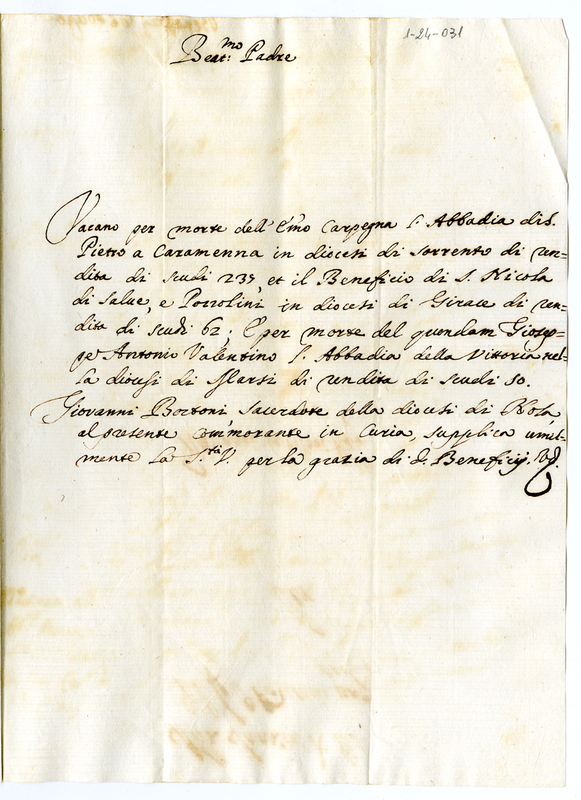 1-24-031
Beat:mo Padre
Vacano per morte dell' Emo Carpegna l'Abbadia di S.
Pietro a Caramenna in diocesi di Sorrento di ren=
dita di scudi 235, et il Beneficio di S. Nicola
di Salue, e Pozzolini in diocesi di Girace di ren=
dita di scudi 62; E per morte del quendam Giosep=
pe Antonio Valentino l'Abbadia della Vittoria nel=
la diocesi di Marsi di rendita di scudi 50.
Giovanni Bortoni Sacerdote della diocesi di Nola
al presente commorante in Curia, supplica umil=
mente la S.tà V. per la grazia di d. Beneficij.